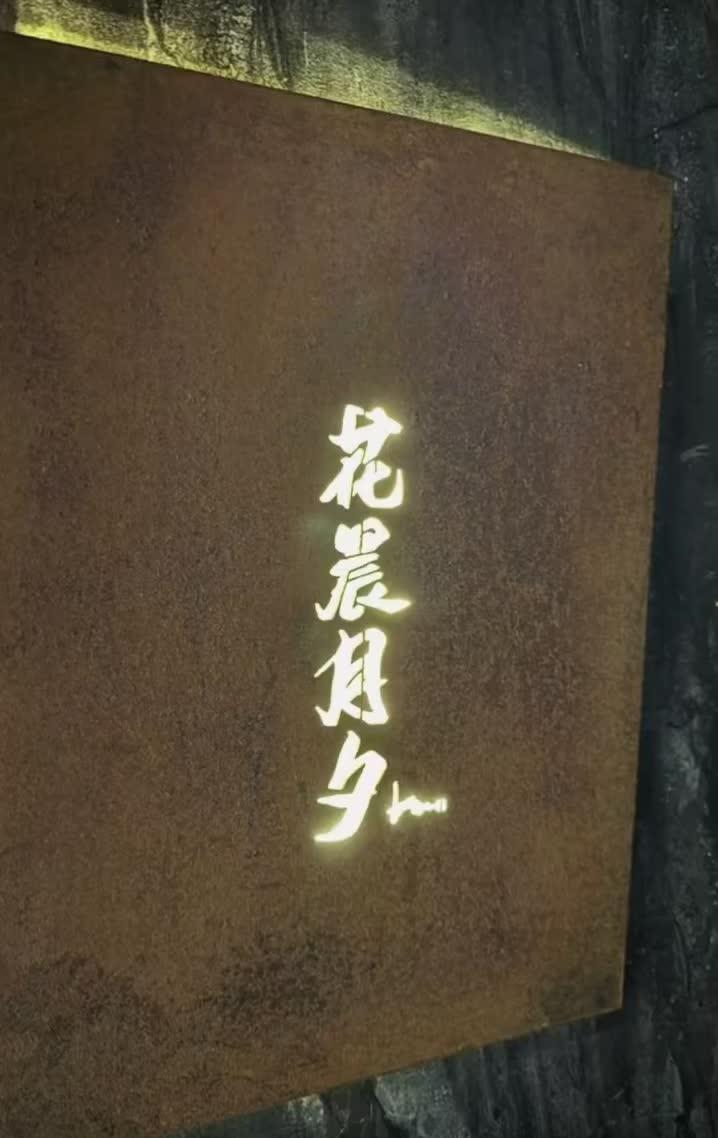 花晨月夕